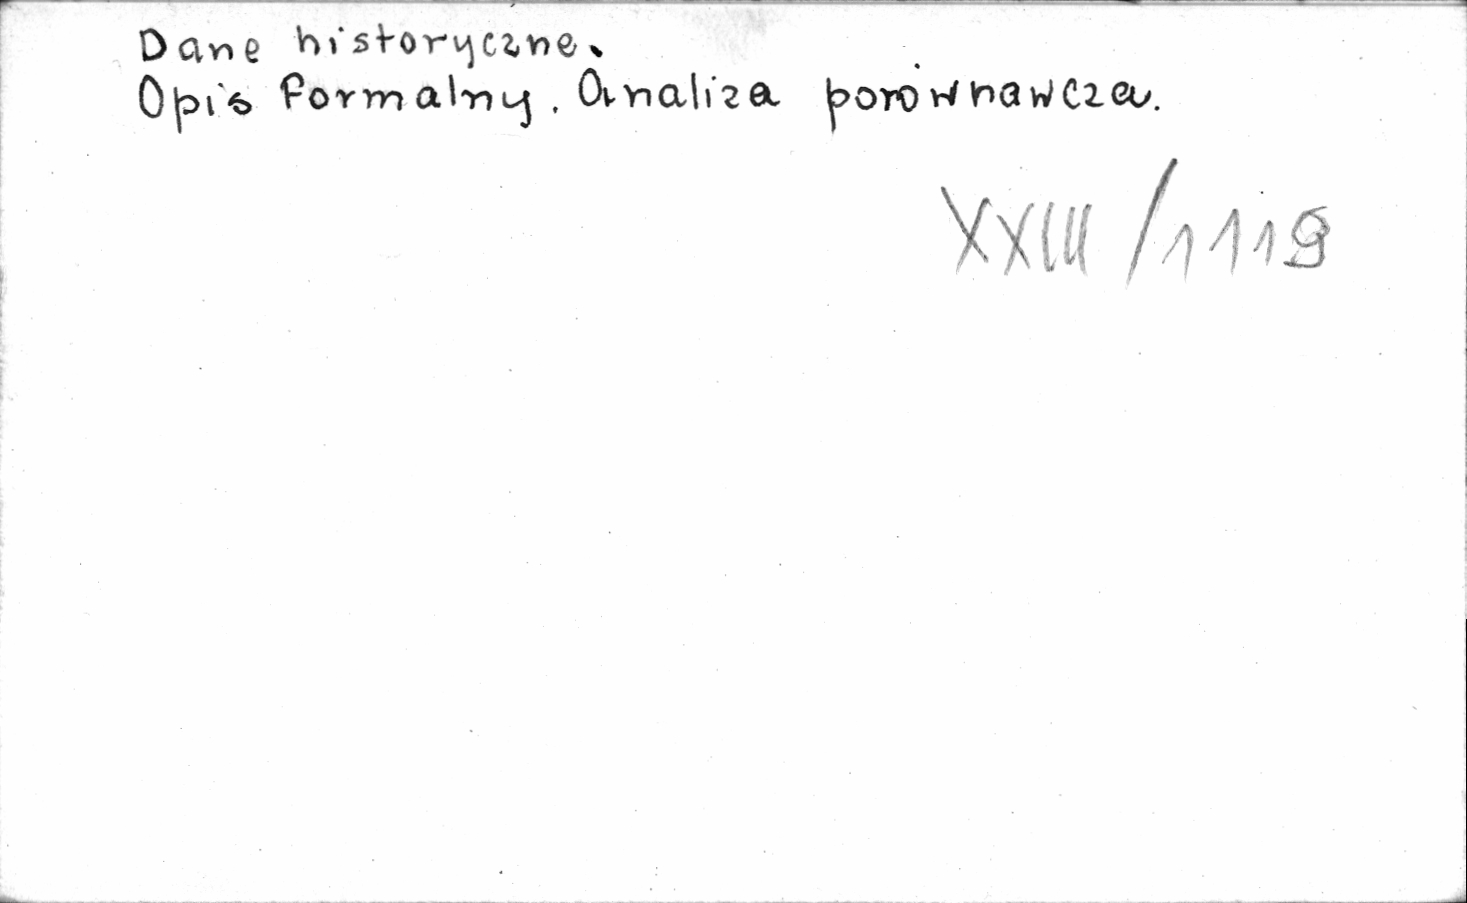 Dane historyczne.
Opis formalny. Analiza porównawcza.
XXIII/1119